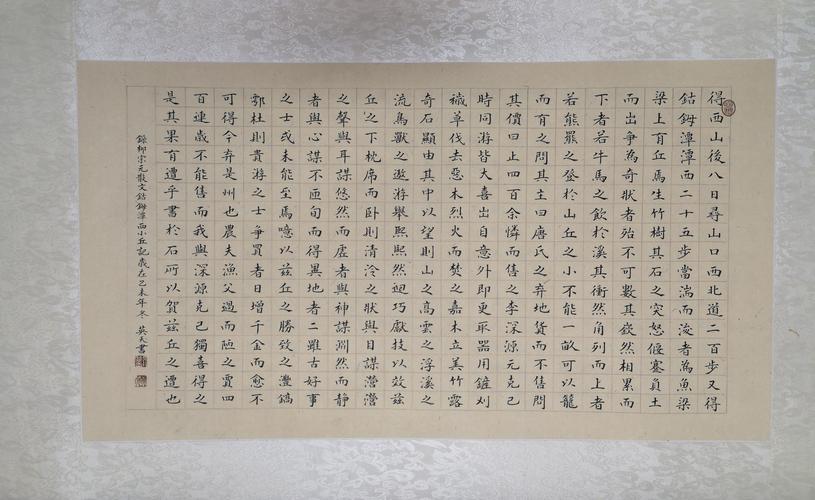 得西山後八日尋山口西北道二百步又得
鈷鉧潭潭西二十五步當湍而浚者為魚梁
梁上有丘焉生竹樹其石之突怒偃蹇負土
而出爭為奇狀者殆不可數其嶔然相累而
下者若牛馬之飲於溪其衝然角列而上者
若熊羆之登於山丘之小不能一畝可以籠
而有之問其主曰唐氏之弃地貨而不售問
其價曰止四百余憐而售之李深源元克己
時同游皆大喜出自意外即更取器用鏟刈
穢草伐去惡木烈火而焚之嘉木立美竹露
奇石顯由其中以望則山之高雲之浮溪之
流鳥獸之遨游舉熙熙然迴巧獻技以效茲
丘之下枕席而臥則清泠之狀與目謀瀯瀯
之聲與耳謀悠然而虛者與神謀淵然而靜
者與心謀不匝旬而得異地者二雖古好事
之士或未能至焉噫以茲丘之勝致之灃鎬
鄠杜則貴游之士爭買者日增千金而愈不
可得今弃是州也農夫漁父過而陋之賈四
百連歲不能售而我與深源克己獨喜得之
是其果有遭乎書於石所以賀茲丘之遭也
錄柳宗元散文鈷鉧潭西小丘記歲在乙未年冬 英夫書